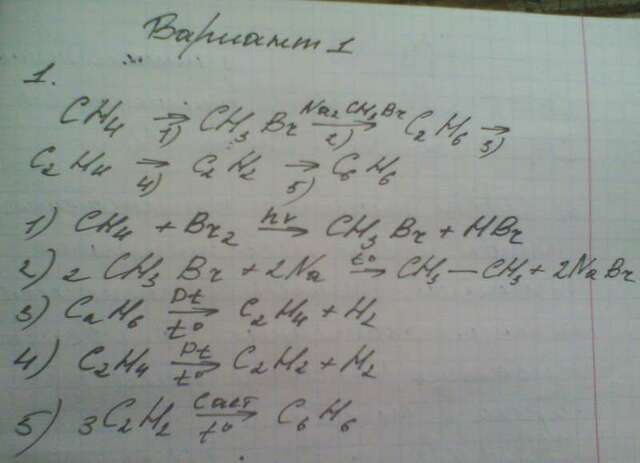 Вариант 1
1.
CH4 →1) CH3Br Na, CH3Br→2) C2H6 →3)
C2H4 →4) C2H2 →5) C6H6
1) CH4 + Br2 hν→ CH3Br + HBr
2) 2CH3Br + 2Na t°→ CH3—CH3 + 2NaBr
3) C2H6 Pt→t° C2H4 + H2
4) C2H4 Pt→t° C2H2 + H2
5) 3C2H2 C акт→t° C6H6